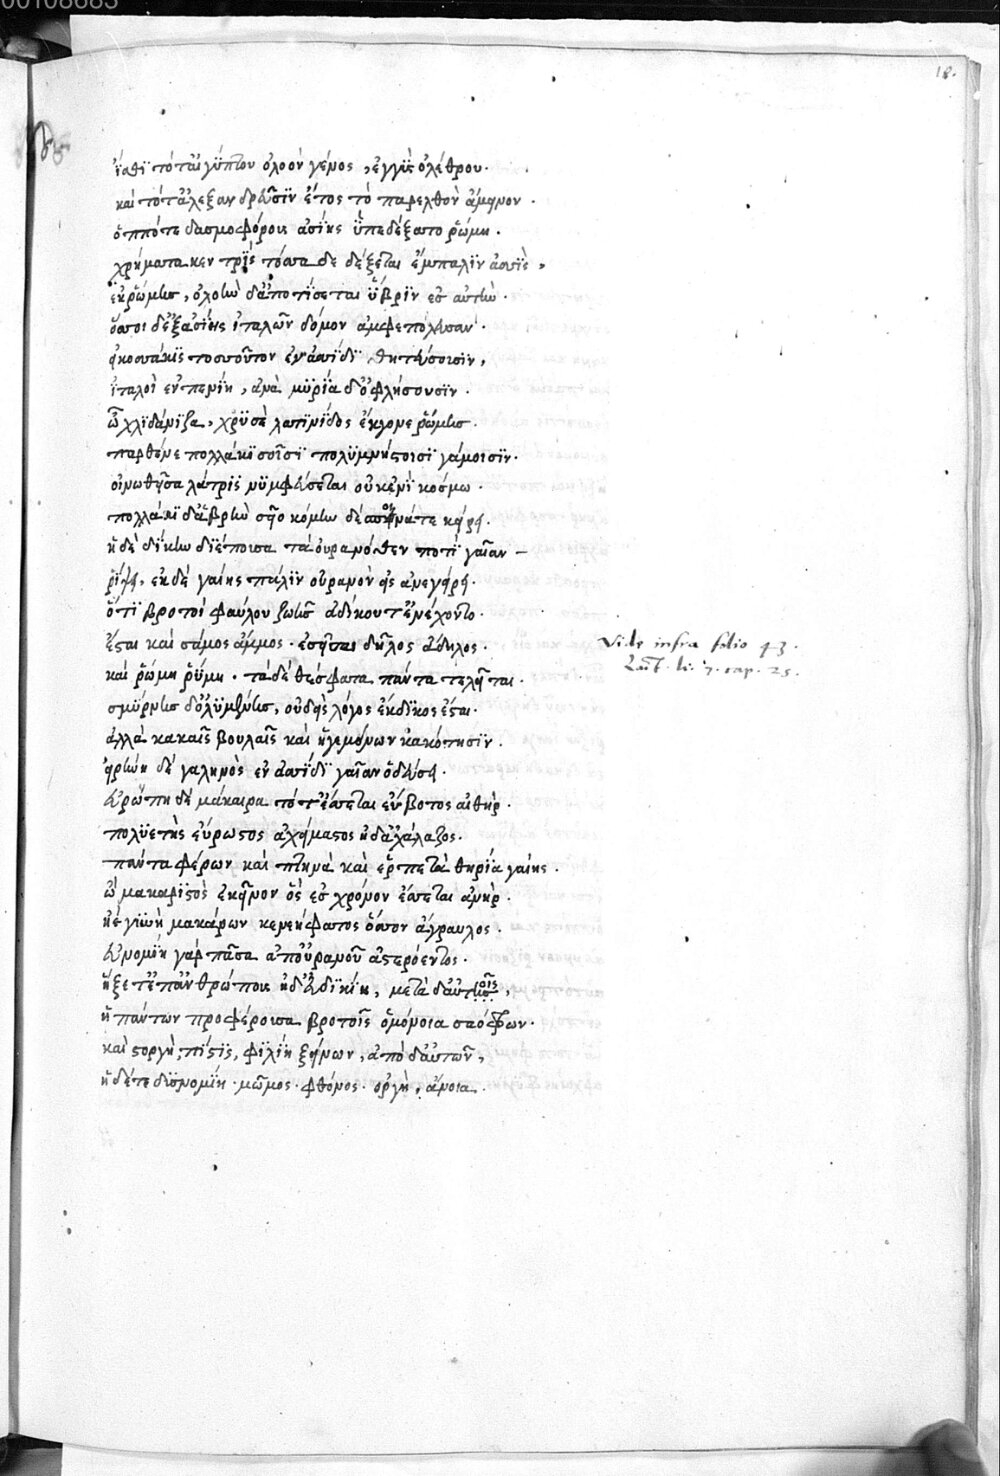 00108683
18.
ἴσθϊ τότ' αἰγύπτου ὀλοὸν γένος, ἐγγὺς ὀλέθρου.
καὶ τότ' ἀλεξανδρεῦσϊν ἔτος τὸ παρελθὸν ἄμεινον.
ὅππότε δασμοφόρου ἀσίης ὑπεδέξατο ῥώμη.
χρήματα κεν τρὶς τόσσα δεδέξεται ἔμπαλϊν ἀσσὶς,
ἐκ ῥώμης, ὀλοὴν δ' ἀποτίσεται ὕβρϊν ἐσ αὐτὴν.
ὅσσοι δ' ἐξ ἀσίης ἰταλῶν δόμον ἀμφεπόλευσαν.
εἰκοσσάκϊς τοσσοῦτον ἐν ἀσσίδϊ θητεύσουσϊν,
ἰταλοὶ ἐν πενίη, ἀνὰ μϋρία δ' ὀφλήσουσϊν.
ὦ χλϊδάνϊζα, χρϋσὲ λατϊνῖδος ἔκγονε ῥώμης.
παρθένε πολλάκϊ σοῖσϊ πολϋμνήστοισϊ γάμοισϊν.
οἰνωθεῖσα λάτρϊς νϋμφεύσεται οὐκ ἐνὶ κόσμω.
πολλάκϊ δ' ἁβρὴν σεῖο κόμην δέσποινά τε κείρει.
ἠδὲ δίκην διέπουσα τὰ οὐρανόθεν ποτὶ γαῖαν
ῥίψει, ἐκ δὲ γαίης πάλϊν οὐρανὸν εἰς ἀνεγείρει.
ὅτϊ βροτοὶ φαύλου ζωῆς ἀδίκου τ' ἐνέχοντο.
ἔσται καὶ σάμος ἄμμος. ἐσεῖται δῆλος ἄδηλος.
καὶ ῥώμη ῥύμη. τὰ δὲ θέσφατα πάντα τελεῖται.
σμϋρνης δ' ὀλϋμένης, οὐδεὶς λόγος ἔκδϊκος ἔσται.
ἀλλὰ κακαῖς βουλαῖς καὶ ἡγεμόνων κακότησϊν.
εἰρήνη δὲ γαληνὸς ἐν ἀσσίδϊ γαῖαν ὁδεύσει.
εὐρώπη δὲ μάκαιρα τότ' ἔσσεται εὔβοτος αἰθὴρ.
πολϋετὴς εὔρωστος ἀχείματος ἠδ' ἀχάλαζος.
πάντα φέρων καὶ πτηνὰ καὶ ἑρπετὰ θηρία γαίης.
ὢ μακαριστὸς ἐκεῖνον ὃς ἐσ χρόνον ἔσσεται ἀνὴρ.
ἠὲ γϋνὴ μακάρων κενεήφατος ὅσσον ἄγραυλος.
εὐνομίη γὰρ πᾶσα ἀπ' οὐρανοῦ ἀστερόεντος.
ἥξε τ' ἐπ' ἀνθρώπους ἠδ' εὐδϊκίη, μετὰ δ' αὐτῆσ οῖς,
ἡ πάντων προφέρουσα βροτοῖς ὁμόνοια σαόφρων.
καὶ στοργὴ, πίστϊς, φϊλίη ξείνων, ἀπὸ δ' αὐτῶν,
ἠδέ τε δϋσνομίη. μῶμος. φθόνος. ὀργὴ, ἄνοια.
Vide infra folio 43.
Lact. li. 7. cap. 25.